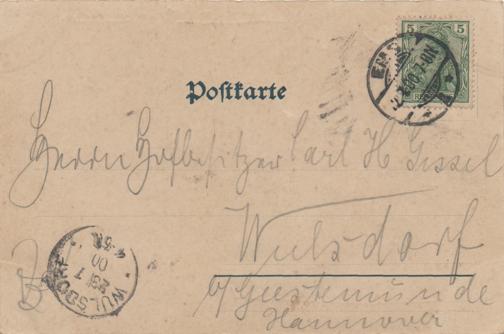 5 5
Postkarte
Herrn Hofbesitzer Carl H Gissel
Wulsdorf
b/ Geestemünde
Hannover
WULSDORF
23/7
00